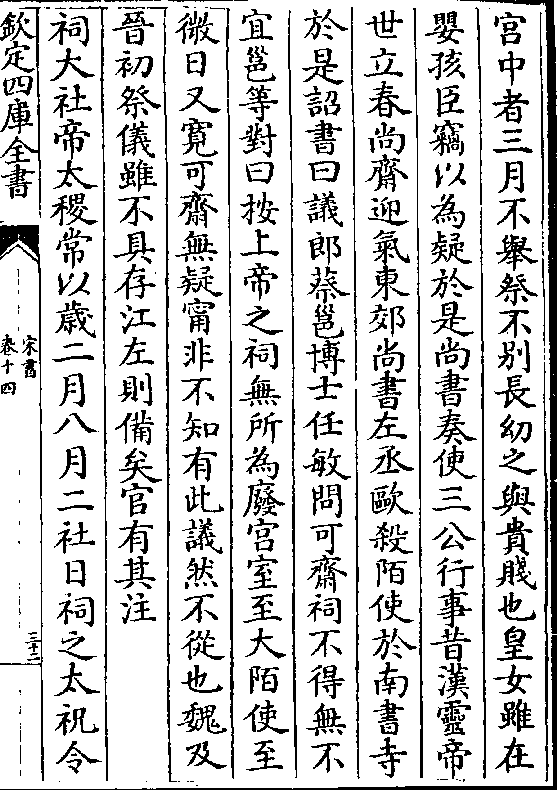 宫中者三月不舉祭不别長幼之與貴賤也皇女雖在
嬰孩臣竊以為疑於是尚書奏使三公行事昔漢靈帝
世立春尚齋迎氣東郊尚書左丞毆殺陌使於南書寺
於是詔書曰議郎蔡邕博士任敏問可齋祠不得無不
宜邕等對曰按上帝之祠無所為廢宫室至大陌使至
微日又寛可齋無疑甯非不知有此議然不從也魏及
晉初祭儀雖不具存江左則備矣官有其注
祠大社帝太稷常以歲二月八月二社日祠之太祝令
欽定四庫全書
宋書
卷十四
三十二